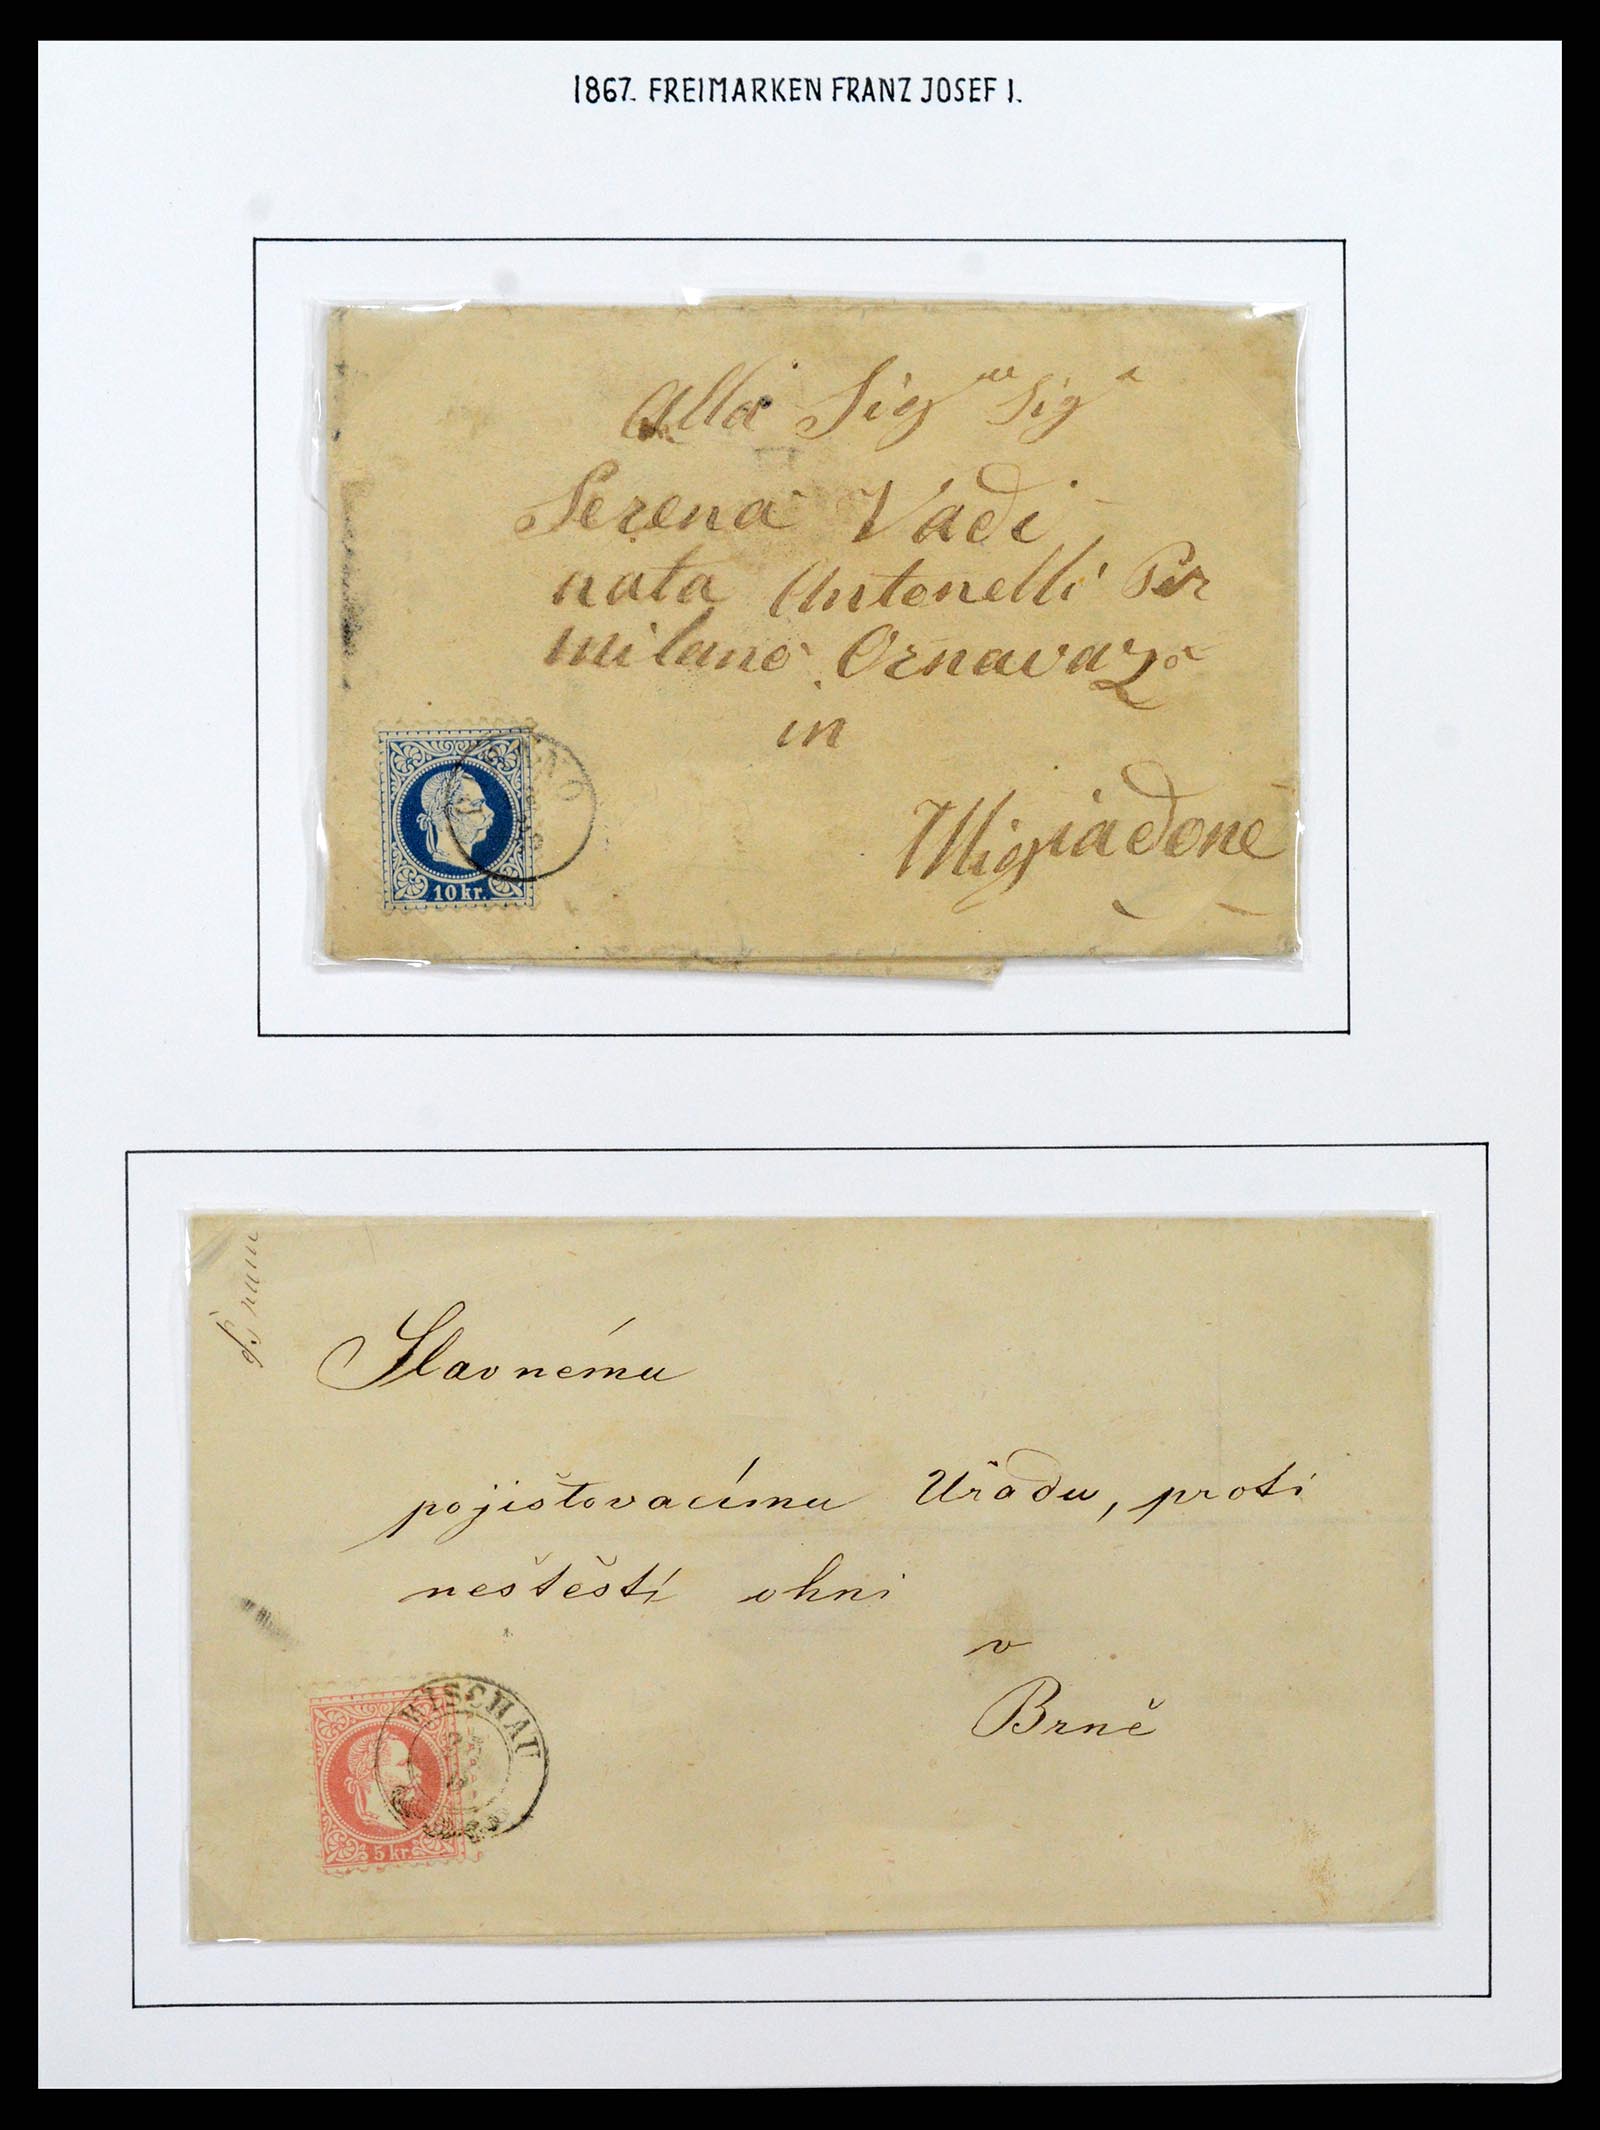 1867. FREIMARKEN FRANZ JOSEF I.
Alla Sig^ra Sig^a
Serena Vadi
nata Antonelli Per
Milano Ornavazo
in
Migiadone
10 kr.
Slavnému
pojišťovacímu Úřadu, proti
neštěstí ohni
v
Brně
WISCHAU
5 kr.